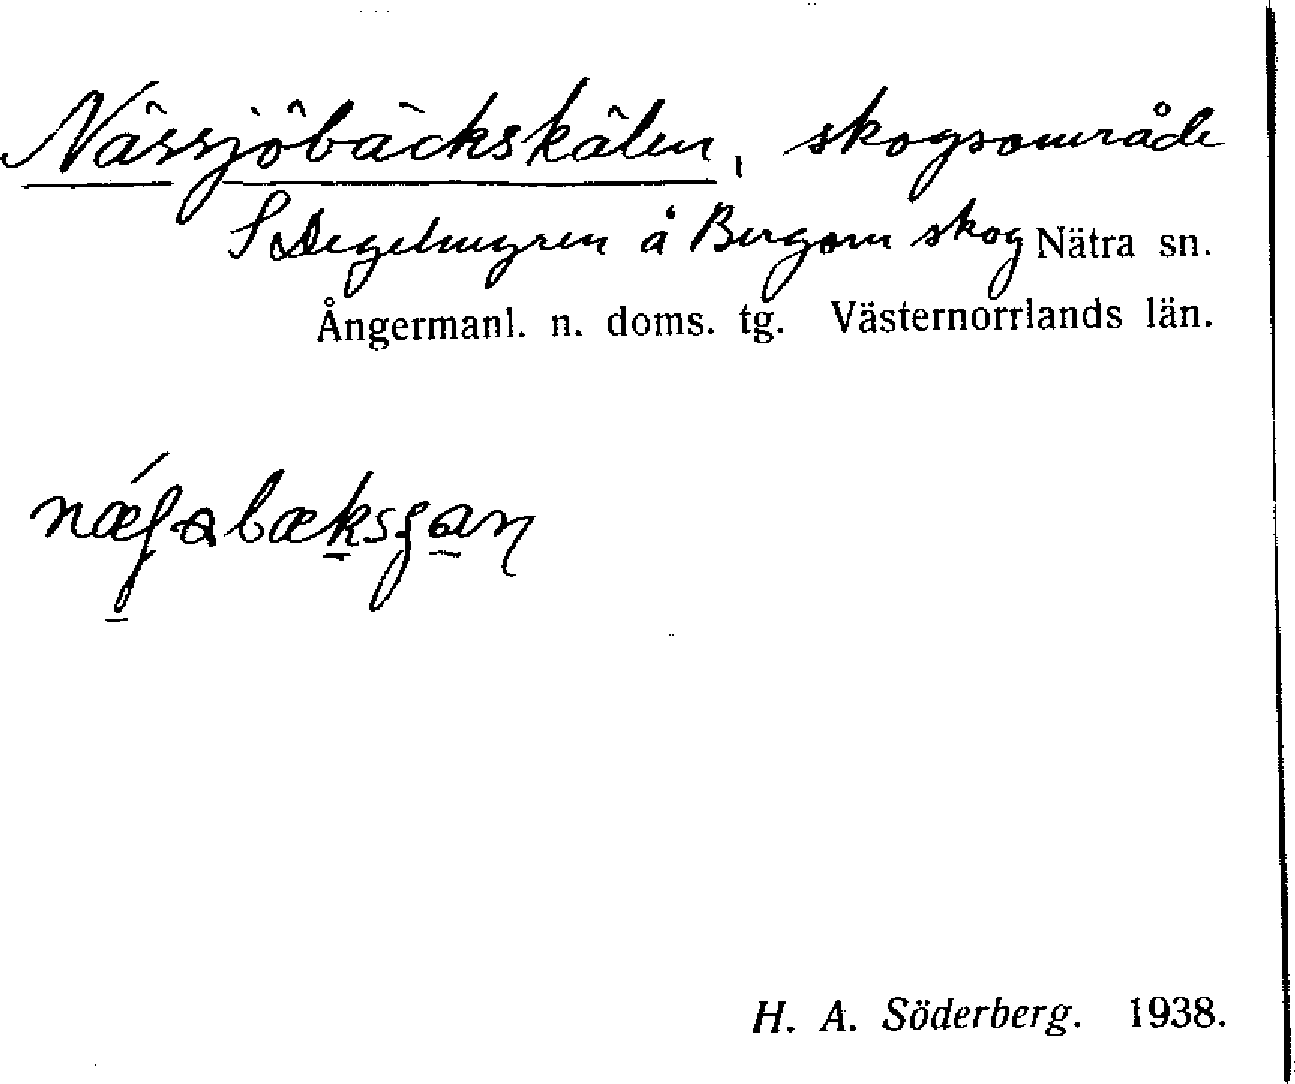 Nässjöbäckskälen, skogsområde
S Degelmyren å Bergom skog Nätra sn.
Ångermanl. n. doms. tg. Västernorrlands län.
H. A. Söderberg. 1938.